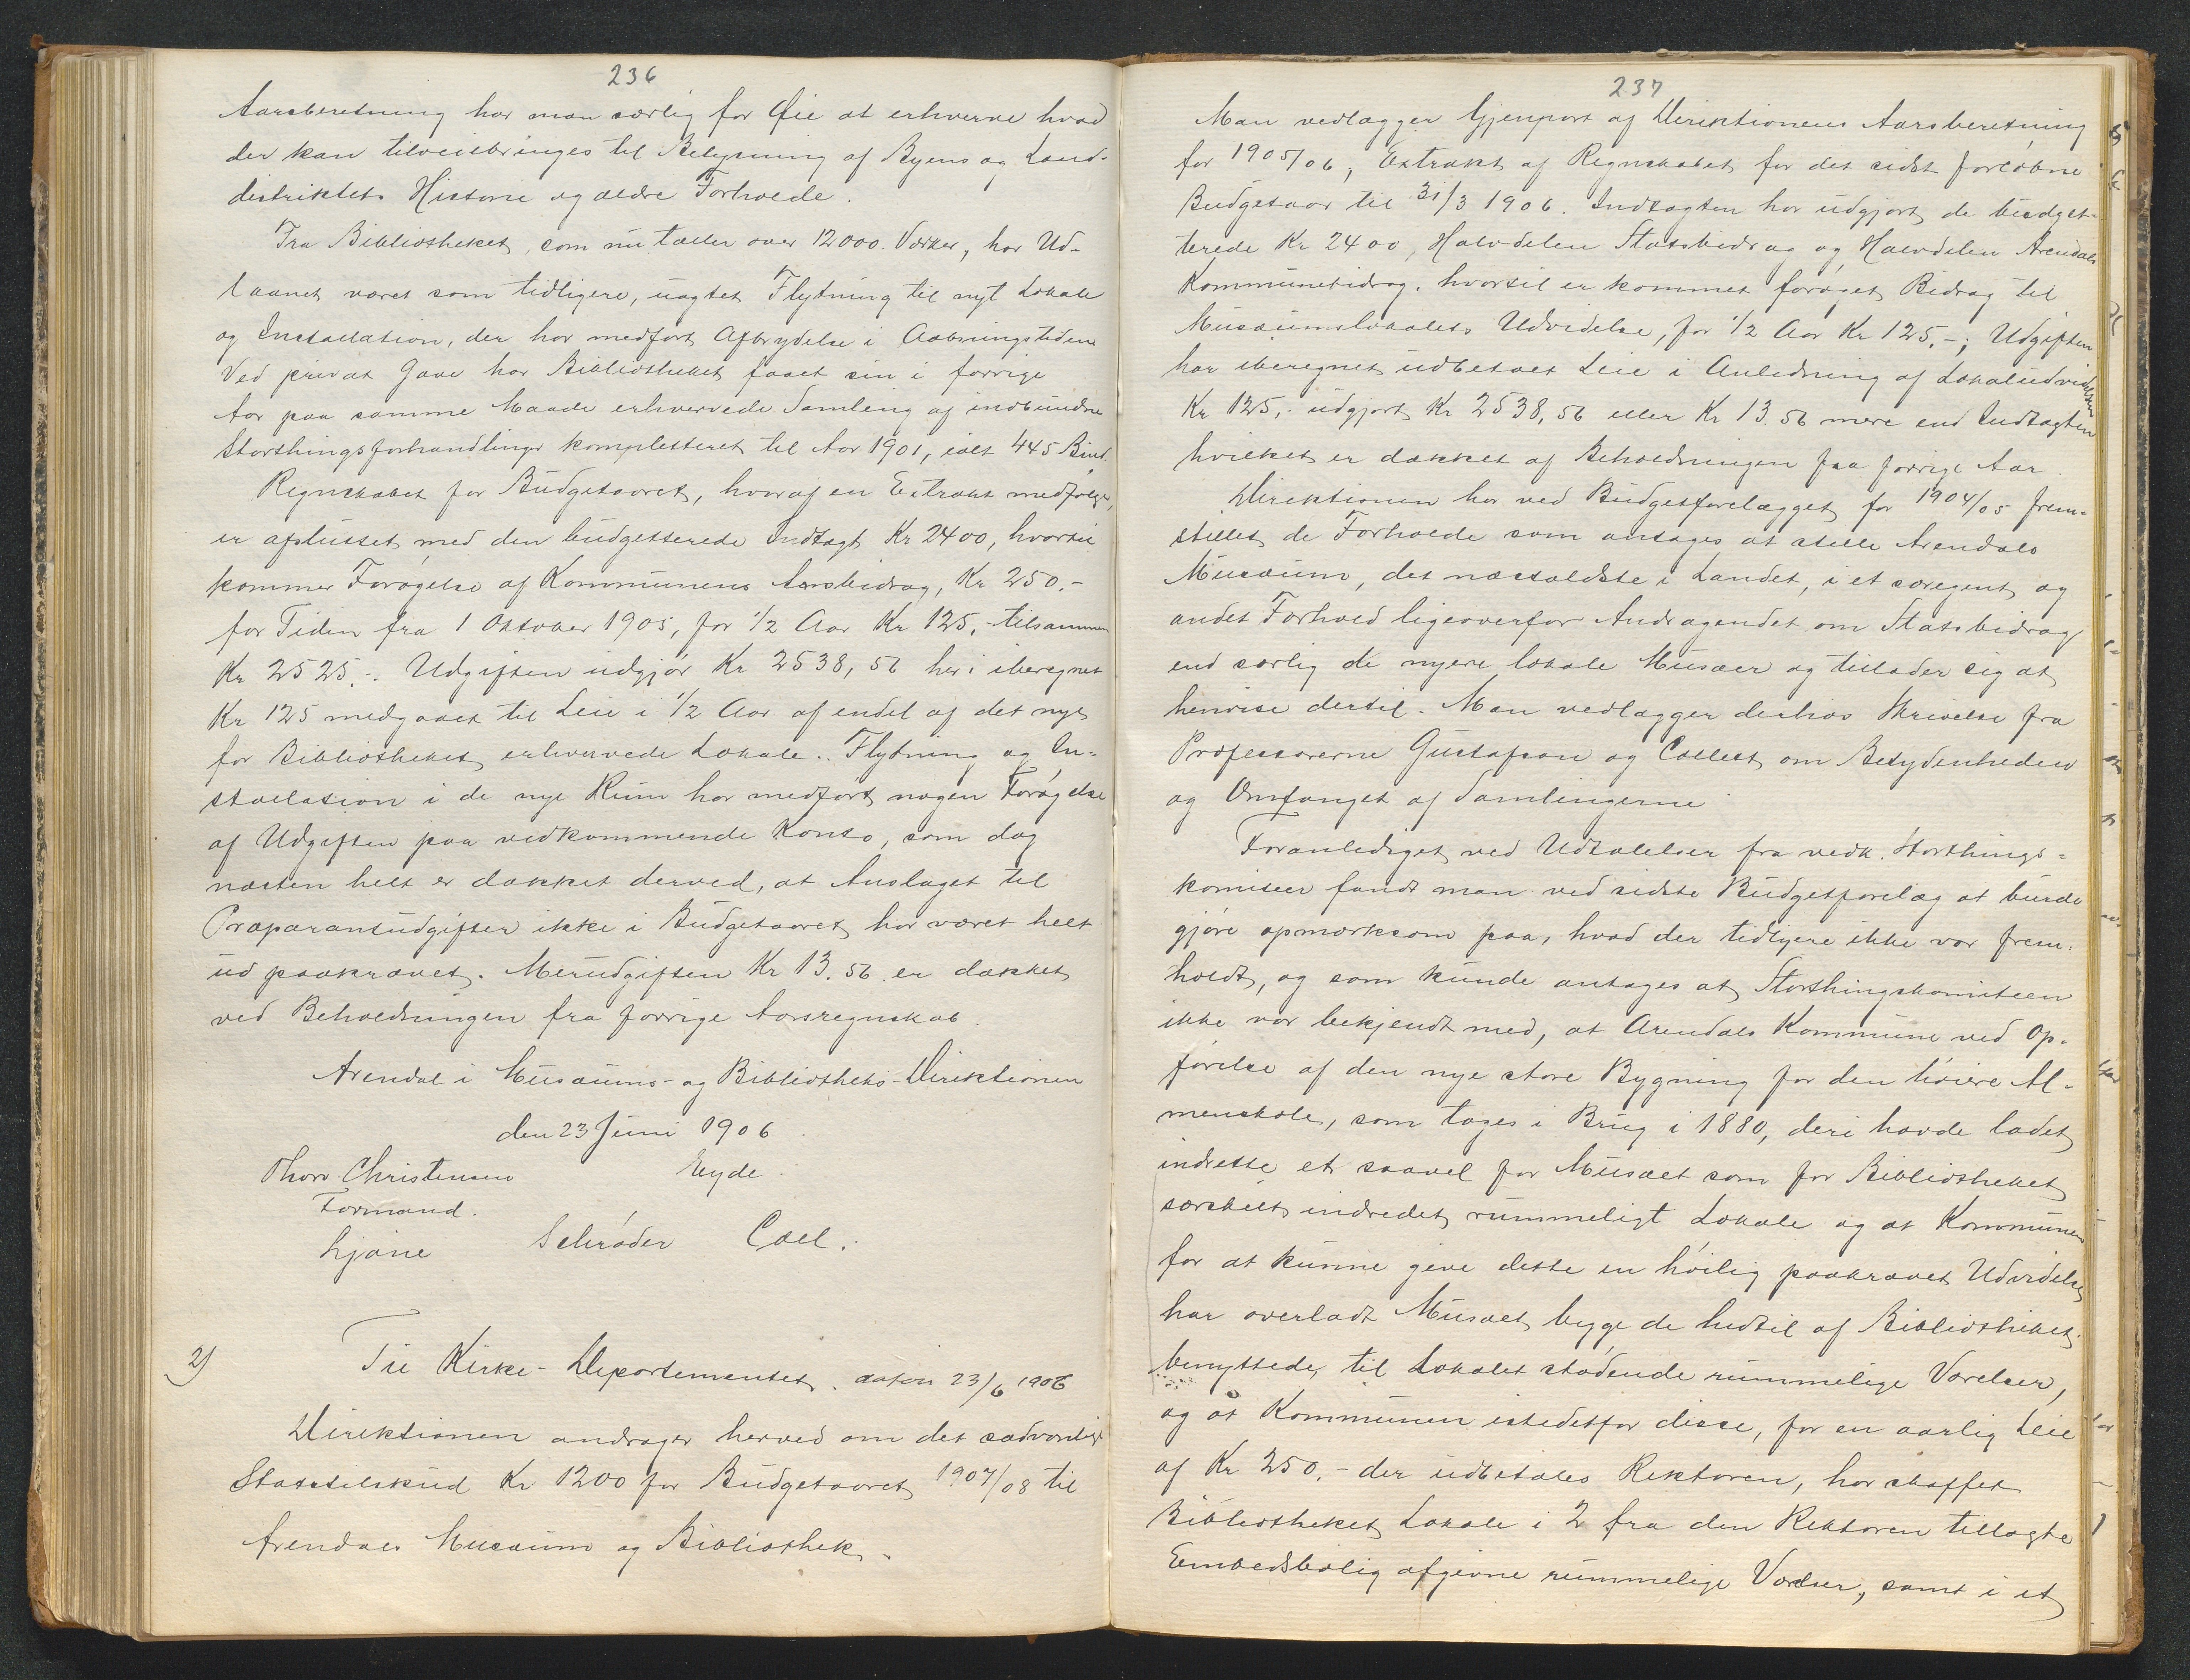 236
Aarsberetning har man særlig for Øie at erhverve hvad
der kan tilveiebringes til Belysning af Byens og Land-
distriktets Historie og ældre Forholde.
Fra Bibliotheket, som nu tæller over 12000 Værker, har Ud-
laanet været som tidligere, uagtet Flytning til nyt Lokale
og Installation, der har medført Afbrydelse i Aabningstiden
Ved privat Gave har Bibliotheket faaet sin i forrige
Aar paa samme Maade erhvervede Samling af indbundne
Storthingsforhandlinger kompletteret til Aar 1901, ialt 445 Bind.
Regnskabet for Budgetaaret, hvoraf en Extrakt medfølger,
er afsluttet med den budgetterede Indtægt Kr 2400, hvortil
kommer Forøgelse af Kommunens Aarsbidrag, Kr 250.-
for Tiden fra 1 Oktober 1905, for 1/2 Aar Kr 125,- tilsammen
Kr 2525.-. Udgiften udgjør Kr 2538,56 heri iberegnet
Kr 125 medgaaet til Leie i 1/2 Aar af endel af det nye
for Bibliotheket erhvervede Lokale. Flytning og In-
stallation i de nye Rum har medført nogen Forøgelse
af Udgiften paa vedkommende Konto, som dog
næsten helt er dækket derved, at Anslaget til
Præparantudgifter ikke i Budgetaaret har været helt
ud paakrævet. Merudgiften Kr 13.56 er dækket
ved Beholdningen fra forrige Aarsregnskab.
Arendal i Musæums- og Bibliotheks-Direktionen
den 23 Juni 1906.
Thorv. Christensen Eyde.
Formand.
Schrøder Coll.
2) Til Kirke-Departementet. daton 23/6 1906
Direktionen andrager herved om det sædvanlige
Statstilskud Kr 1200 for Budgetaaret 1907/08 til
Arendals Musæum og Bibliothek.
237
Man vedlægger Gjenpart af Direktionens Aarsberetning
for 1905/06, Extrakt af Regnskabet for det sidst forløbne
Budgetaar til 31/3 1906. Indtægten har udgjort de budget-
terede Kr 2400, Halvdelen Statsbidrag og Halvdelen Arendals
Kommunebidrag, hvortil er kommet forøget Bidrag til
Musæumslokalets Udvidelse, for 1/2 Aar Kr 125.-; Udgiften
har iberegnet udbetalt Leie i Anledning af Lokaludvidelsen
Kr 125,- udgjort Kr 2538,56 eller Kr 13.56 mere end Indtægten
hvilket er dækket af Beholdningen fra forrige Aar.
Direktionen har ved Budgetforelægget for 1904/05 frem-
stillet de Forholde som antages at stille Arendals
Musæum, det næstældste i Landet, i et særegent og
andet Forhold ligeoverfor Andragendet om Statsbidrag
end særlig de nyere lokale Musæer og tillader sig at
henvise dertil. Man vedlægger derhos Skrivelse fra
Professorerne Gustafson og Collett om Betydenheden
og Omfanget af Samlingerne
Foranlediget ved Udtalelser fra vedk. Storthings-
komiteer fandt man ved sidste Budgetforelæg at burde
gjøre opmærksom paa, hvad der tidligere ikke var frem-
holdt, og som kunde antages at Storthingskomiteen
ikke var bekjendt med, at Arendals Kommune ved Op-
førelse af den nye store Bygning for den høiere Al-
menskole, som toges i Brug i 1880, deri havde ladet
indrette et saavel for Musæet som for Bibliotheket
særskilt indredet rummeligt Lokale og at Kommunen
for at kunne give dette en høilig paakrævet Udvidelse
har overladt Musæet begge de hidtil af Bibliotheket
benyttede, til Lokalet stødende rummelige Værelser,
og at Kommunen istedetfor disse, for en aarlig Leie
af Kr 250.- der udbetales Rektoren, har skaffet
Bibliotheket Lokale i 2 fra den Rektoren tillagte
Embedsbolig afgivne rummelige Værelser, samt i et